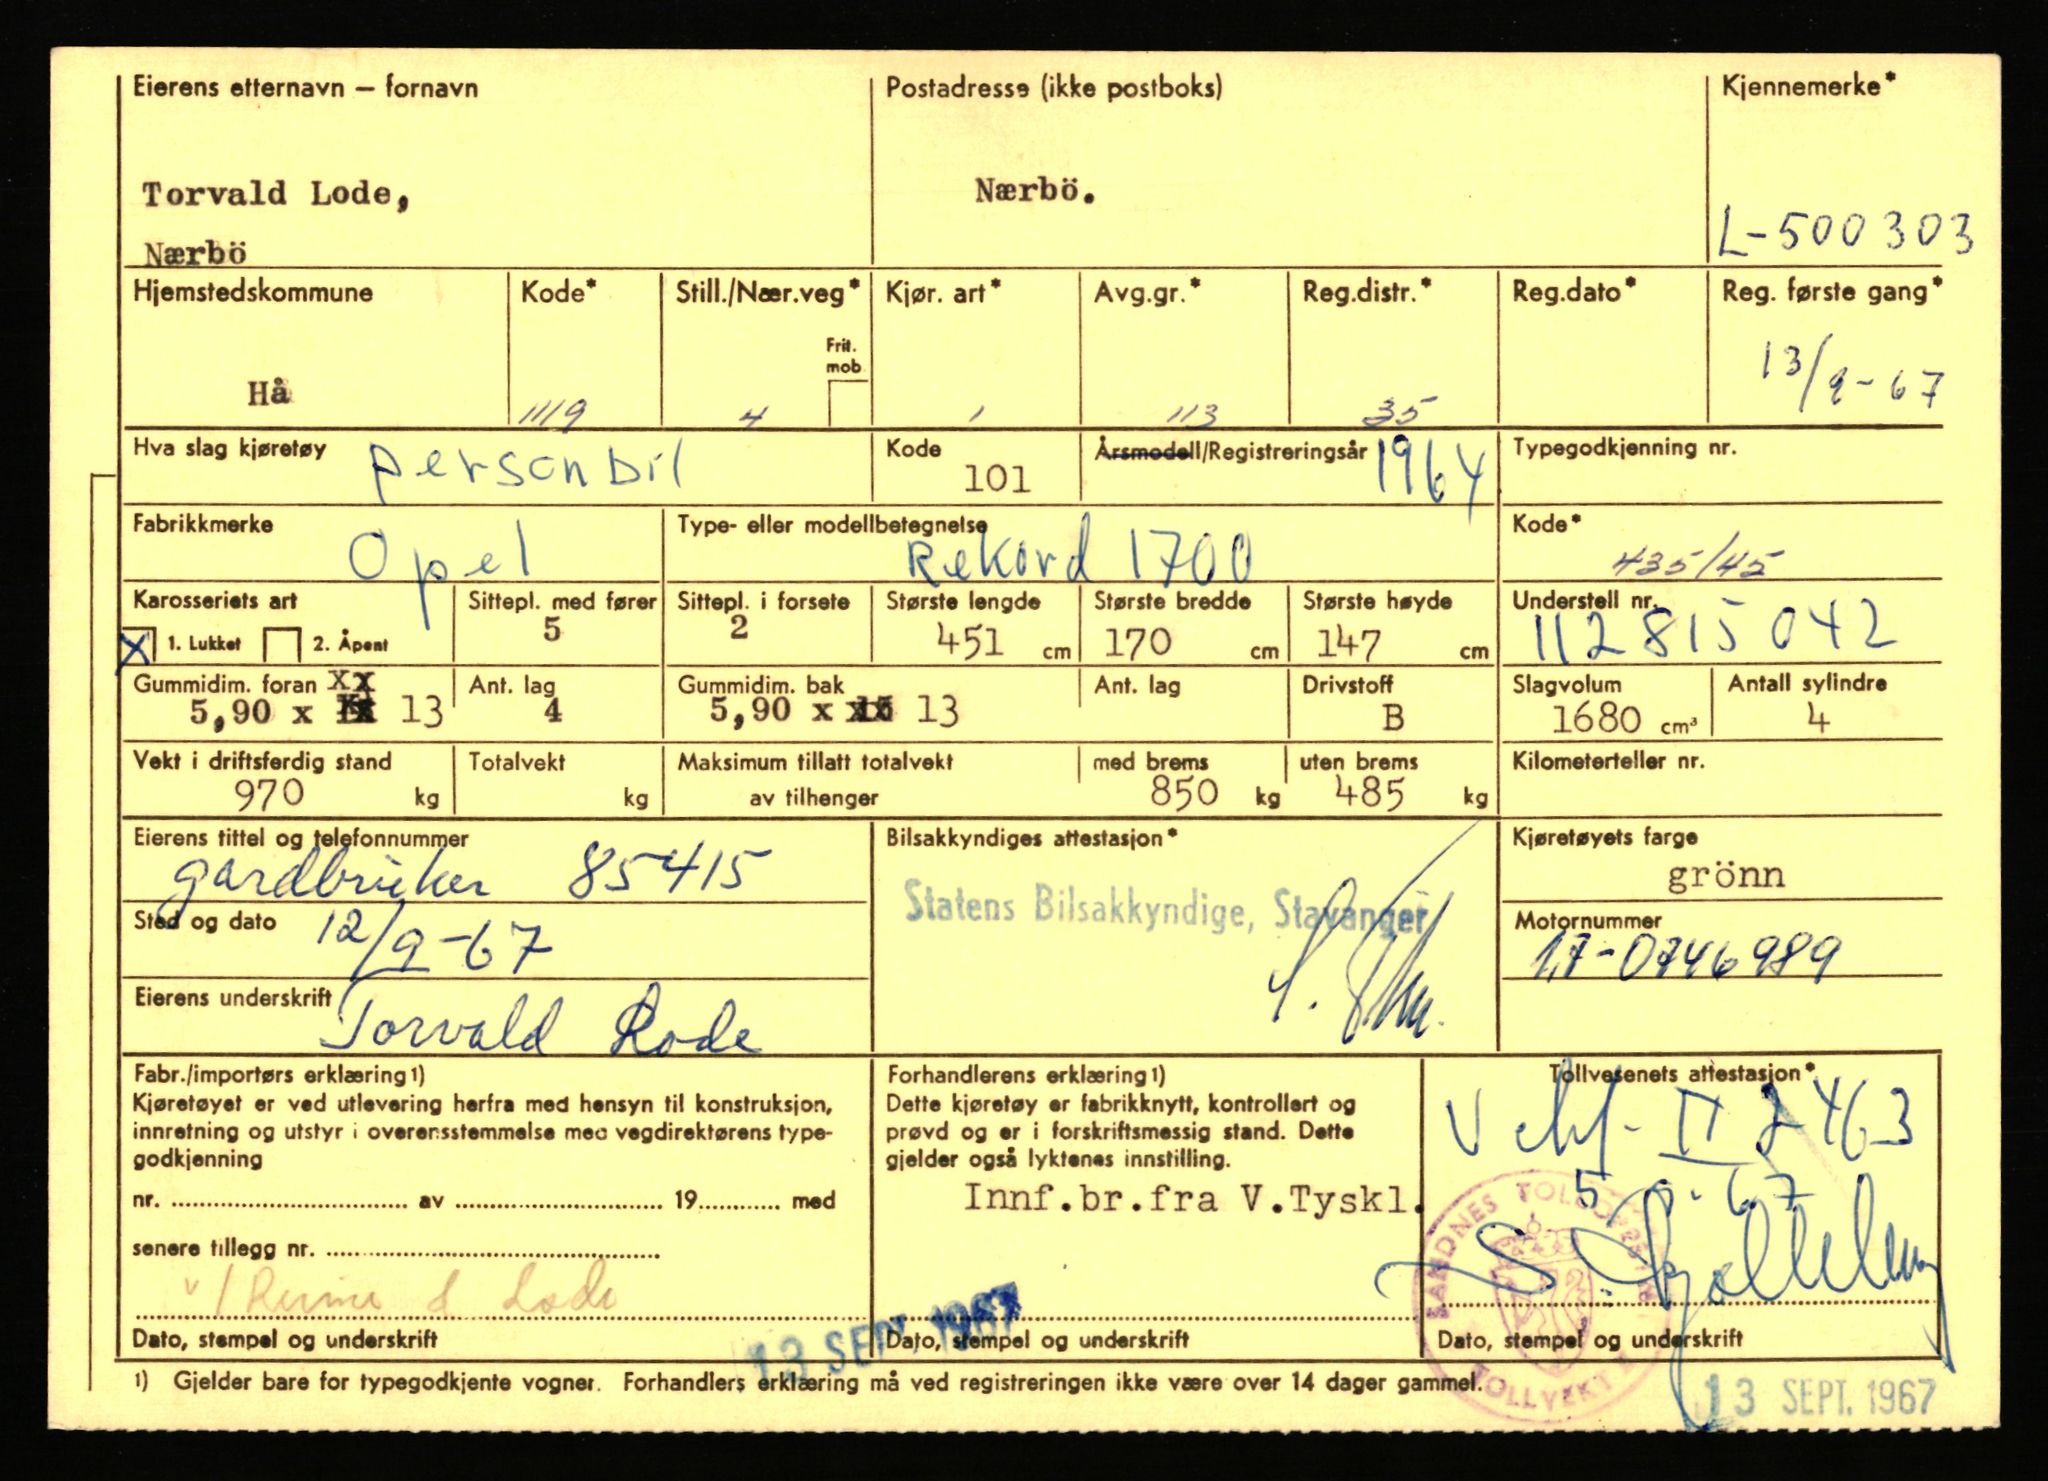 Eierens etternavn – fornavn Postadresse (ikke postboks) Kjennemerke*
Torvald Lode, Nærbö.
Nærbö L-500303
Hjemstedskommune Kode* Still./Nær.veg* Kjør. art* Avg.gr.* Reg.distr.* Reg.dato* Reg. første gang*
Frit. mob.
Hå 1119 4 1 113 35 13/9-67
Hva slag kjøretøy personbil Kode 101 Årsmodell/Registreringsår 1964 Typegodkjenning nr.
Fabrikkmerke Type- eller modellbetegnelse Kode*
Opel Rekord 1700 435/45
Karosseriets art Sittepl. med fører Sittepl. i forsete Største lengde Største bredde Største høyde Understell nr.
X 1. Lukket 2. Åpent 5 2 451 cm 170 cm 147 cm 112815042
Gummidim. foran xx Ant. lag Gummidim. bak Ant. lag Drivstoff Slagvolum Antall sylindre
5,90 x 13 4 5,90 x 13 B 1680 cm³ 4
Vekt i driftsferdig stand Totalvekt Maksimum tillatt totalvekt med brems uten brems Kilometerteller nr.
970 kg kg av tilhenger 850 kg 485 kg
Eierens tittel og telefonnummer Bilsakkyndiges attestasjon* Kjøretøyets farge
gardbruker 85415 Statens Bilsakkyndige, Stavanger grönn
Sted og dato 12/9-67 Motornummer
17-0746989
Eierens underskrift
Torvald Lode
Fabr./importørs erklæring 1) Forhandlerens erklæring 1) Tollvesenets attestasjon*
Kjøretøyet er ved utlevering herfra med hensyn til konstruksjon, Dette kjøretøy er fabrikknytt, kontrollert og
innretning og utstyr i overensstemmelse med vegdirektørens type- prøvd og er i forskriftsmessig stand. Dette
godkjenning gjelder også lyktenes innstilling.
II 2463
nr. av 19 med Innf.br.fra V.Tyskl.
67
senere tillegg nr.
SANDNES
v/ Lode
13 SEPT. 1967
Dato, stempel og underskrift Dato, stempel og underskrift Dato, stempel og underskrift
1) Gjelder bare for typegodkjente vogner. Forhandlers erklæring må ved registreringen ikke være over 14 dager gammel.
13 SEPT. 1967